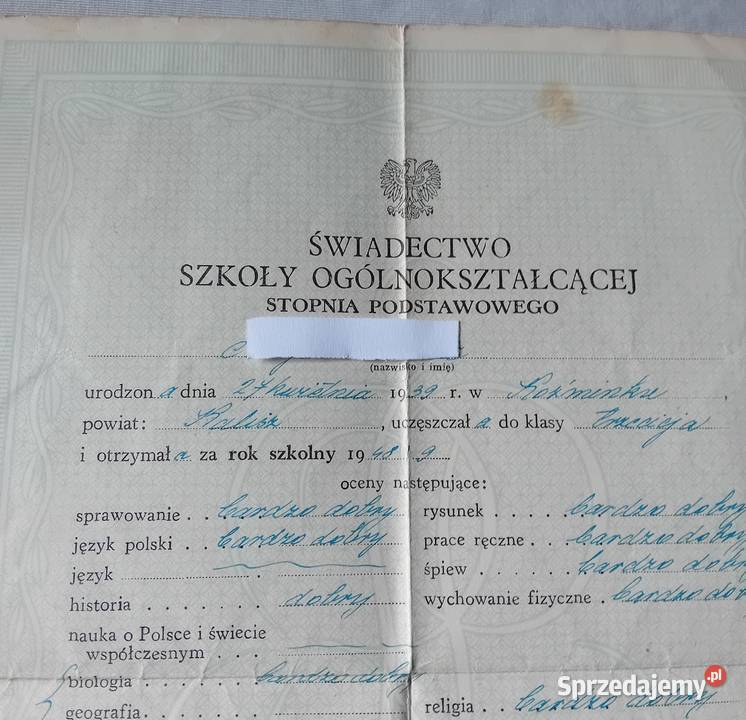 ŚWIADECTWO
SZKOŁY OGÓLNOKSZTAŁCĄCEJ
STOPNIA PODSTAWOWEGO
(nazwisko i imię)
urodzona dnia 27 kwietnia 1939 r. w Koźminku
powiat: Kalisz, uczęszczała do klasy trzeciej
i otrzymała za rok szkolny 1948/9
oceny następujące:
sprawowanie . . bardzo dobry
język polski . . bardzo dobry
język
historia . . . . . . . dobry
nauka o Polsce i świecie
współczesnym . . .
biologia . . . . . . bardzo dobry
geografia . . . . .
rysunek . . . . . bardzo dobry
prace ręczne . . . bardzo dobry
śpiew . . . . . . bardzo dobry
wychowanie fizyczne . bardzo dob
religia . . bardzo dobry
Sprzedajemy.pl